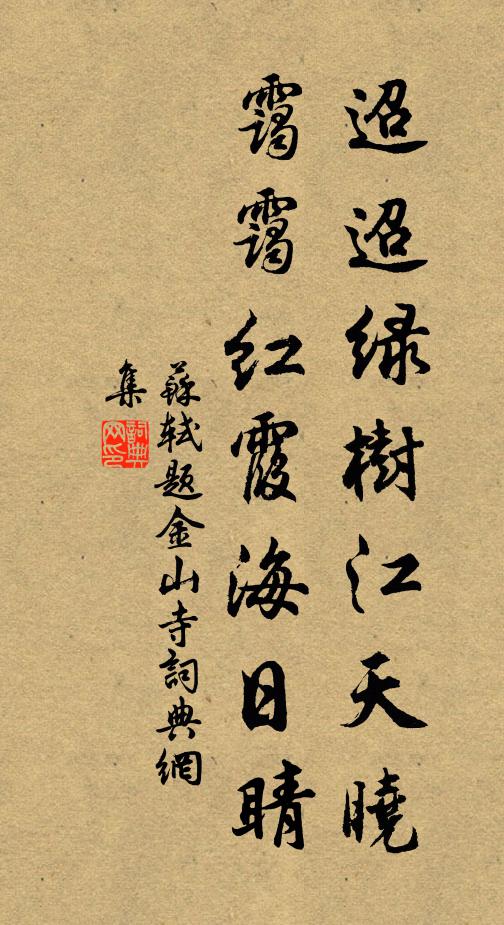 迢迢绿樹江天曉
靄靄红霞海日晴
蘇軾题金山寺詞典網
集
詞典
网印